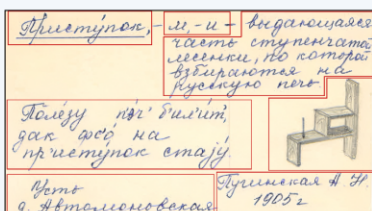 Присту́пок, - м, -и - выдающаяся
часть ступенчатой
лесенки, по которой
взбираются на
русскую печь.
Поле́зу пе́ч' б'ил'и́т',
дак фс'о́ на
пр'исту́пок стају́.
Усть
д. Автомоновская
Пугинская А. Н.
1905 г